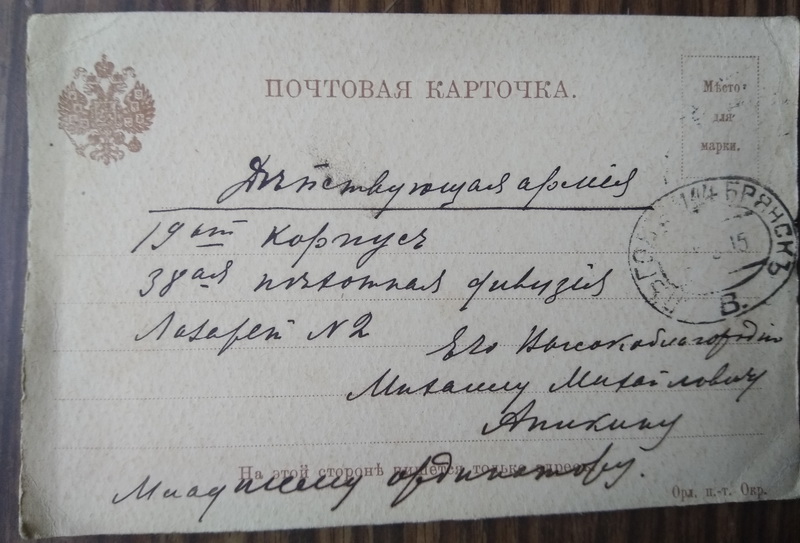 ПОЧТОВАЯ КАРТОЧКА.
Мѣсто
для
марки.
Дѣйствующая армія
19ый корпусъ
38ая пѣхотная дивизія
Лазарет N2
БРЯНСКЪ
15
В.
Его Высокоблагородію
Михаилу Михайловичу
Аникину
На этой сторонѣ пишется только адресъ.
Младшему ординатору.
Орл. п.-т. Окр.